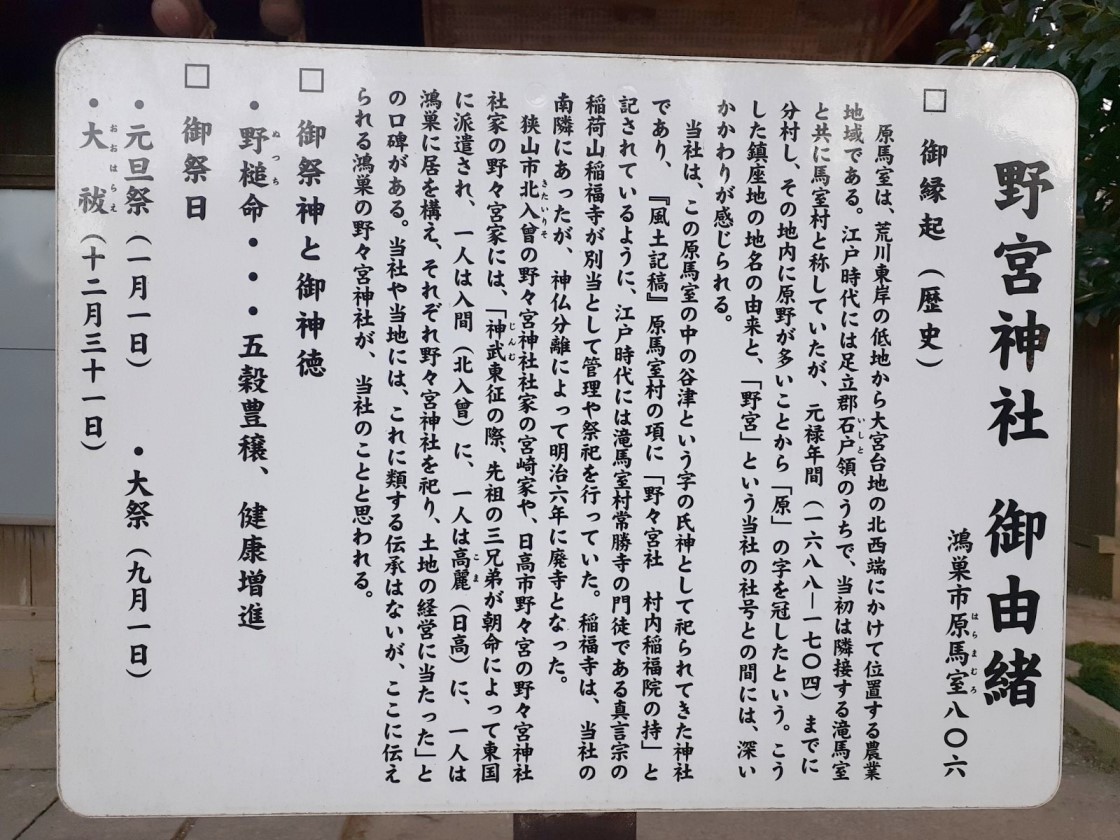 野宮神社 御由緒
鴻巣市原馬室八〇六
はらまむろ
□ 御縁起（歴史）
原馬室は、荒川東岸の低地から大宮台地の北西端にかけて位置する農業
地域である。江戸時代には足立郡石戸領のうちで、当初は隣接する滝馬室
いしと
と共に馬室村と称していたが、元禄年間（一六八八―一七〇四）までに
分村し、その地内に原野が多いことから「原」の字を冠したという。こう
した鎮座地の地名の由来と、「野宮」という当社の社号との間には、深い
かかわりが感じられる。
当社は、この原馬室の中の谷津という字の氏神として祀られてきた神社
であり、『風土記稿』原馬室村の項に「野々宮社 村内稲福院の持」と
記されているように、江戸時代には滝馬室村常勝寺の門徒である真言宗の
稲荷山稲福寺が別当として管理や祭祀を行っていた。稲福寺は、当社の
南隣にあったが、神仏分離によって明治六年に廃寺となった。
狭山市北入曽の野々宮神社社家の宮崎家や、日高市野々宮の野々宮神社
きたいりそ
社家の野々宮家には、「神武東征の際、先祖の三兄弟が朝命によって東国
じんむ
に派遣され、一人は入間（北入曽）に、一人は高麗（日高）に、一人は
こま
鴻巣に居を構え、それぞれ野々宮神社を祀り、土地の経営に当たった」と
の口碑がある。当社や当地には、これに類する伝承はないが、ここに伝え
られる鴻巣の野々宮神社が、当社のことと思われる。
□ 御祭神と御神徳
・野槌命・・・五穀豊穣、健康増進
ぬつち
□ 御祭日
・元旦祭（一月一日） ・大祭（九月一日）
・大祓（十二月三十一日）
おおはらえ